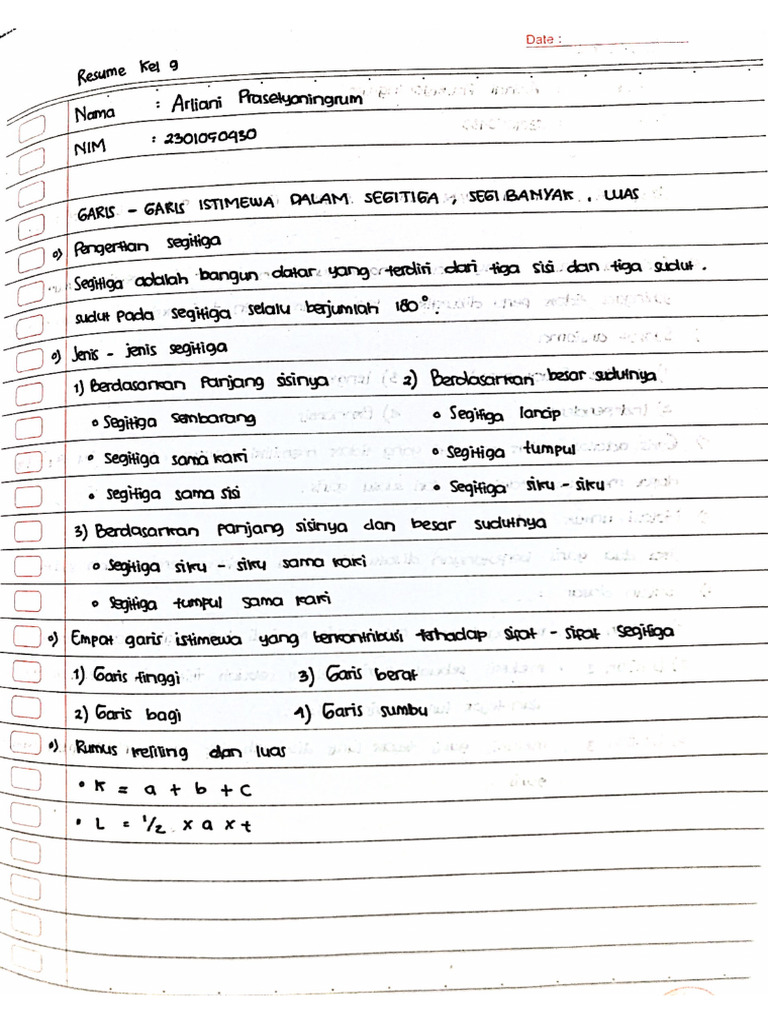 Date :
Resume Kel 9
Nama : Arliani Prasetyoningrum
NIM : 2301090930
GARIS - GARIS ISTIMEWA DALAM SEGITIGA, SEGI BANYAK, LUAS
o) Pengertian segitiga
Segitiga adalah bangun datar yang terdiri dari tiga sisi dan tiga sudut.
sudut pada segitiga selalu berjumlah 180°.
o) Jenis - jenis segitiga
1) Berdasarkan panjang sisinya 2) Berdasarkan besar sudutnya
• Segitiga sembarang • Segitiga lancip
• Segitiga sama kaki • Segitiga tumpul
• Segitiga sama sisi • Segitiga siku - siku
3) Berdasarkan panjang sisinya dan besar sudutnya
• Segitiga siku - siku sama kaki
• Segitiga tumpul sama kaki
o) Empat garis istimewa yang berkontribusi terhadap sifat - sifat segitiga
1) Garis tinggi 3) Garis berat
2) Garis bagi 4) Garis sumbu
o) Rumus keliling dan luas
• K = a + b + c
• L = 1/2 x a x t